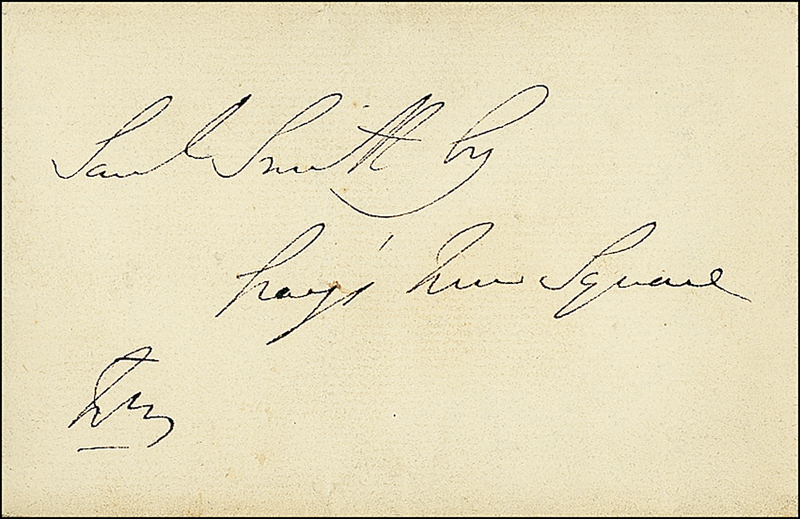 Saml Smith Esq
Gray's Inn Square